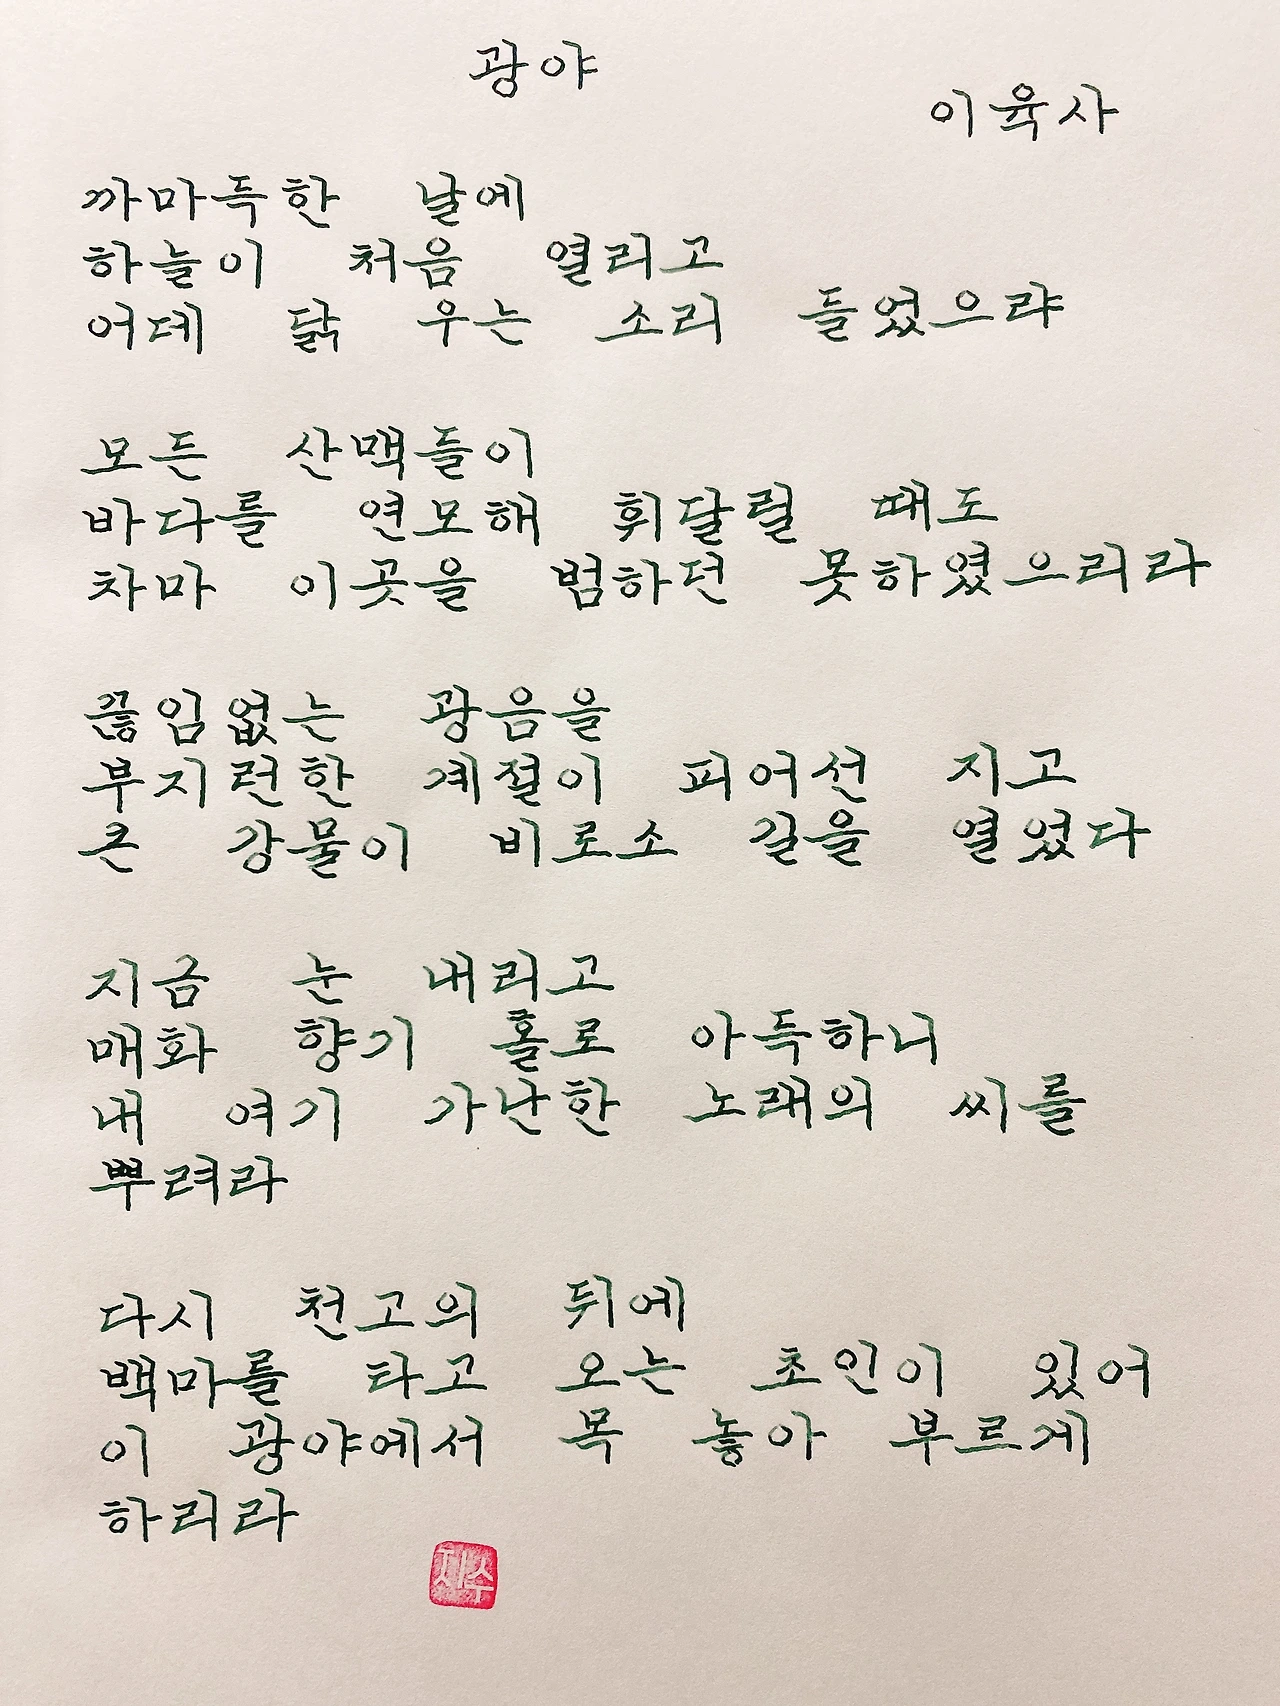 광야
이육사
까마득한 날에
하늘이 처음 열리고
어데 닭 우는 소리 들었으랴
모든 산맥들이
바다를 연모해 휘달릴 때도
차마 이곳을 범하던 못하였으리라
끊임없는 광음을
부지런한 계절이 피어선 지고
큰 강물이 비로소 길을 열었다
지금 눈 내리고
매화 향기 홀로 아득하니
내 여기 가난한 노래의 씨를
뿌려라
다시 천고의 뒤에
백마를 타고 오는 초인이 있어
이 광야에서 목 놓아 부르게
하리라